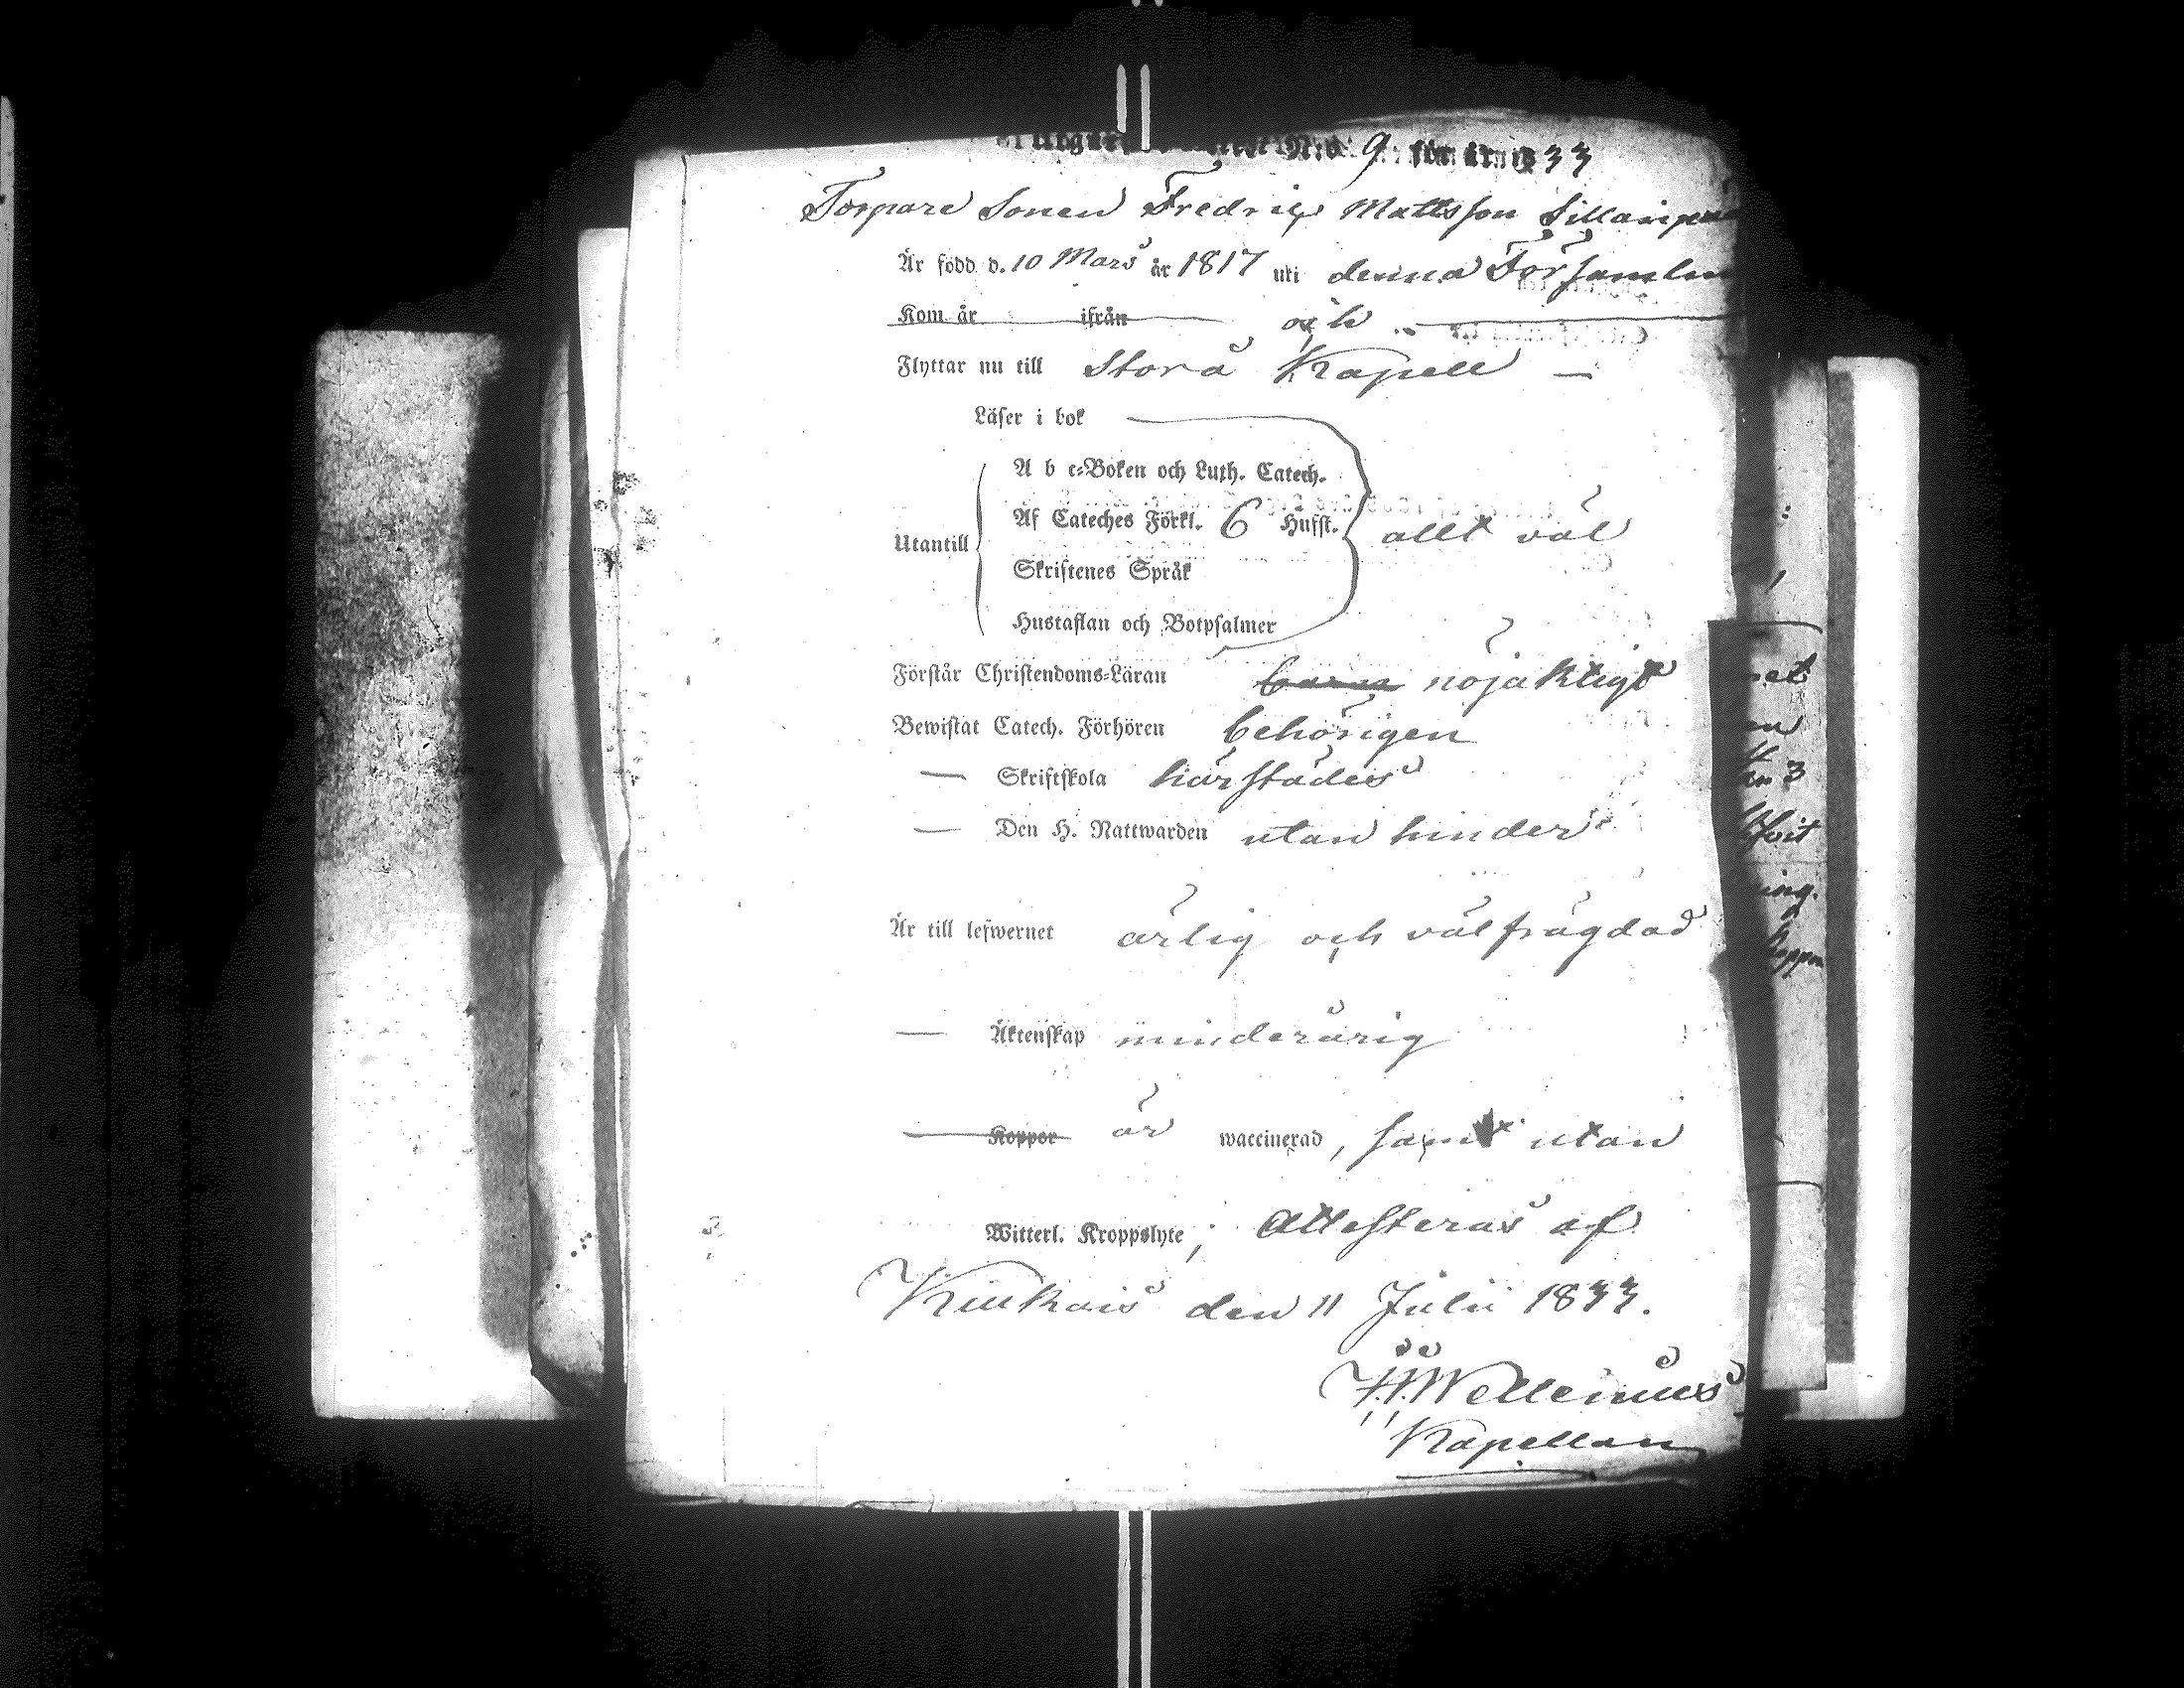 N:o 9 för år 1833
Torpare Sonen Fredric Mattsson Sillanpää
Är född d. 10 Mars år 1817 uti denna Församlin
Kom år ifrån och
Flyttar nu till Storå Kapell —
Läser i bok
A b c-Boken och Luth. Catech.
Utantill Af Cateches Förkl. 6 Hufst. allt väl
Skriftenes Språk
Hustaflan och Botpsalmer
Förstår Christendoms-Läran nöjaktigt
Bewistat Catech. Förhören behörigen
— Skriftskola härstädes
— Den H. Nattwarden utan hinder
Är till lefwernet ärlig och välfrägdad
— Äktenskap minderårig
— Koppor är waccinerad, samt utan
Witterl. Kroppslyte; Attesteras af
Kiukais den 11 Julii 1833.
Welleinius
Kapellan